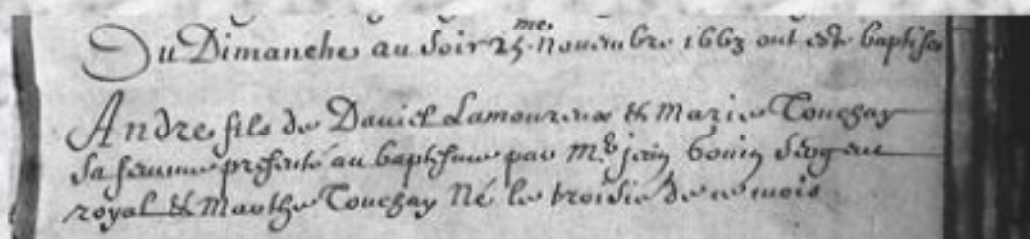 Du Dimanche au soir 25.me novembre 1663 ont esté baptises
Andre fils de Daniel Lamoureux & Marie Touchay
sa femme presenté au baptesme par Me jean
royal & Marthe Touchay Né le troisie de ce mois